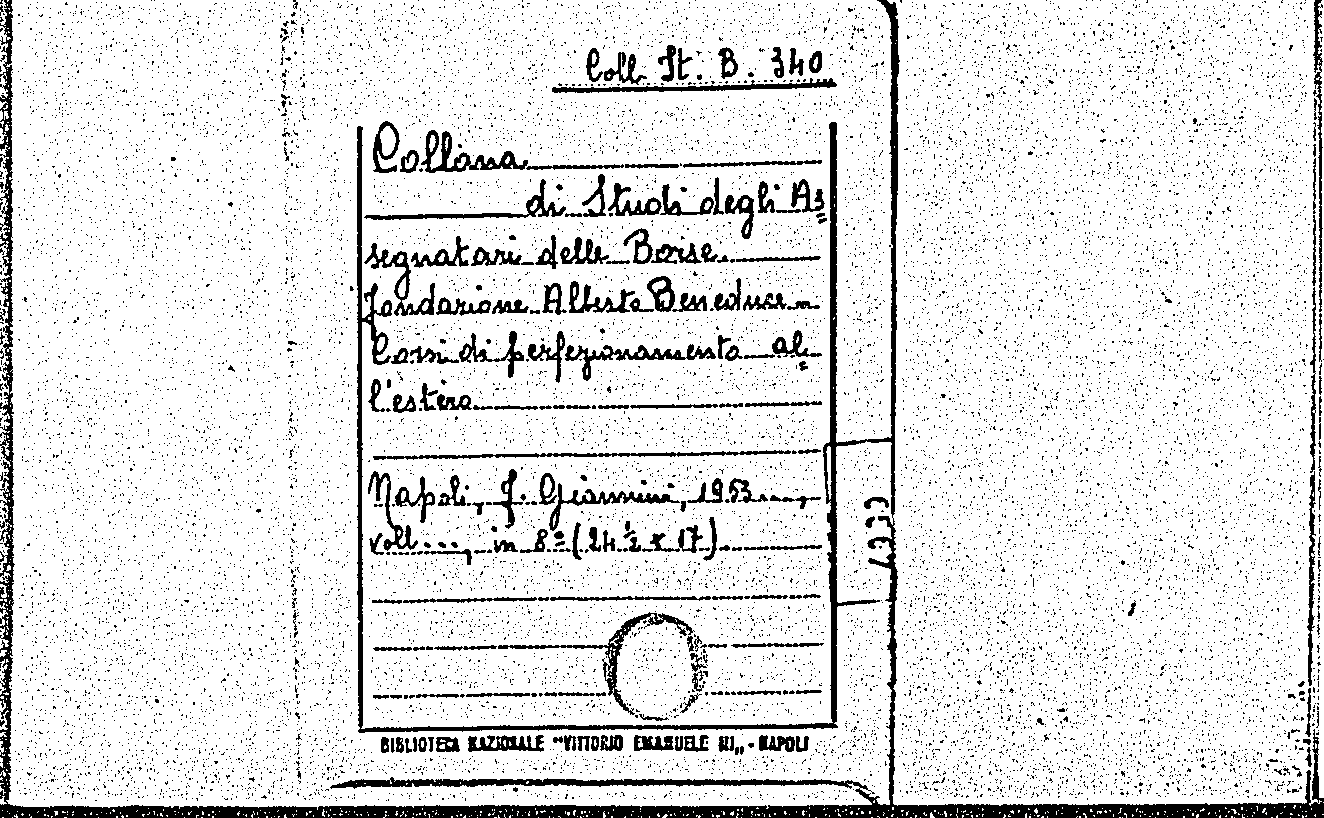 Coll. St. B. 340
Collana
di Studi degli As=
segnatari delle Borse.
Fondazione Alberto Beneduce –
Corsi di perfezionamento al=
l'estero
Napoli, F. Giannini, 1953...,
voll...., in 8º (24 ½ x 17).
BIBLIOTECA NAZIONALE "VITTORIO EMANUELE III„ - NAPOLI